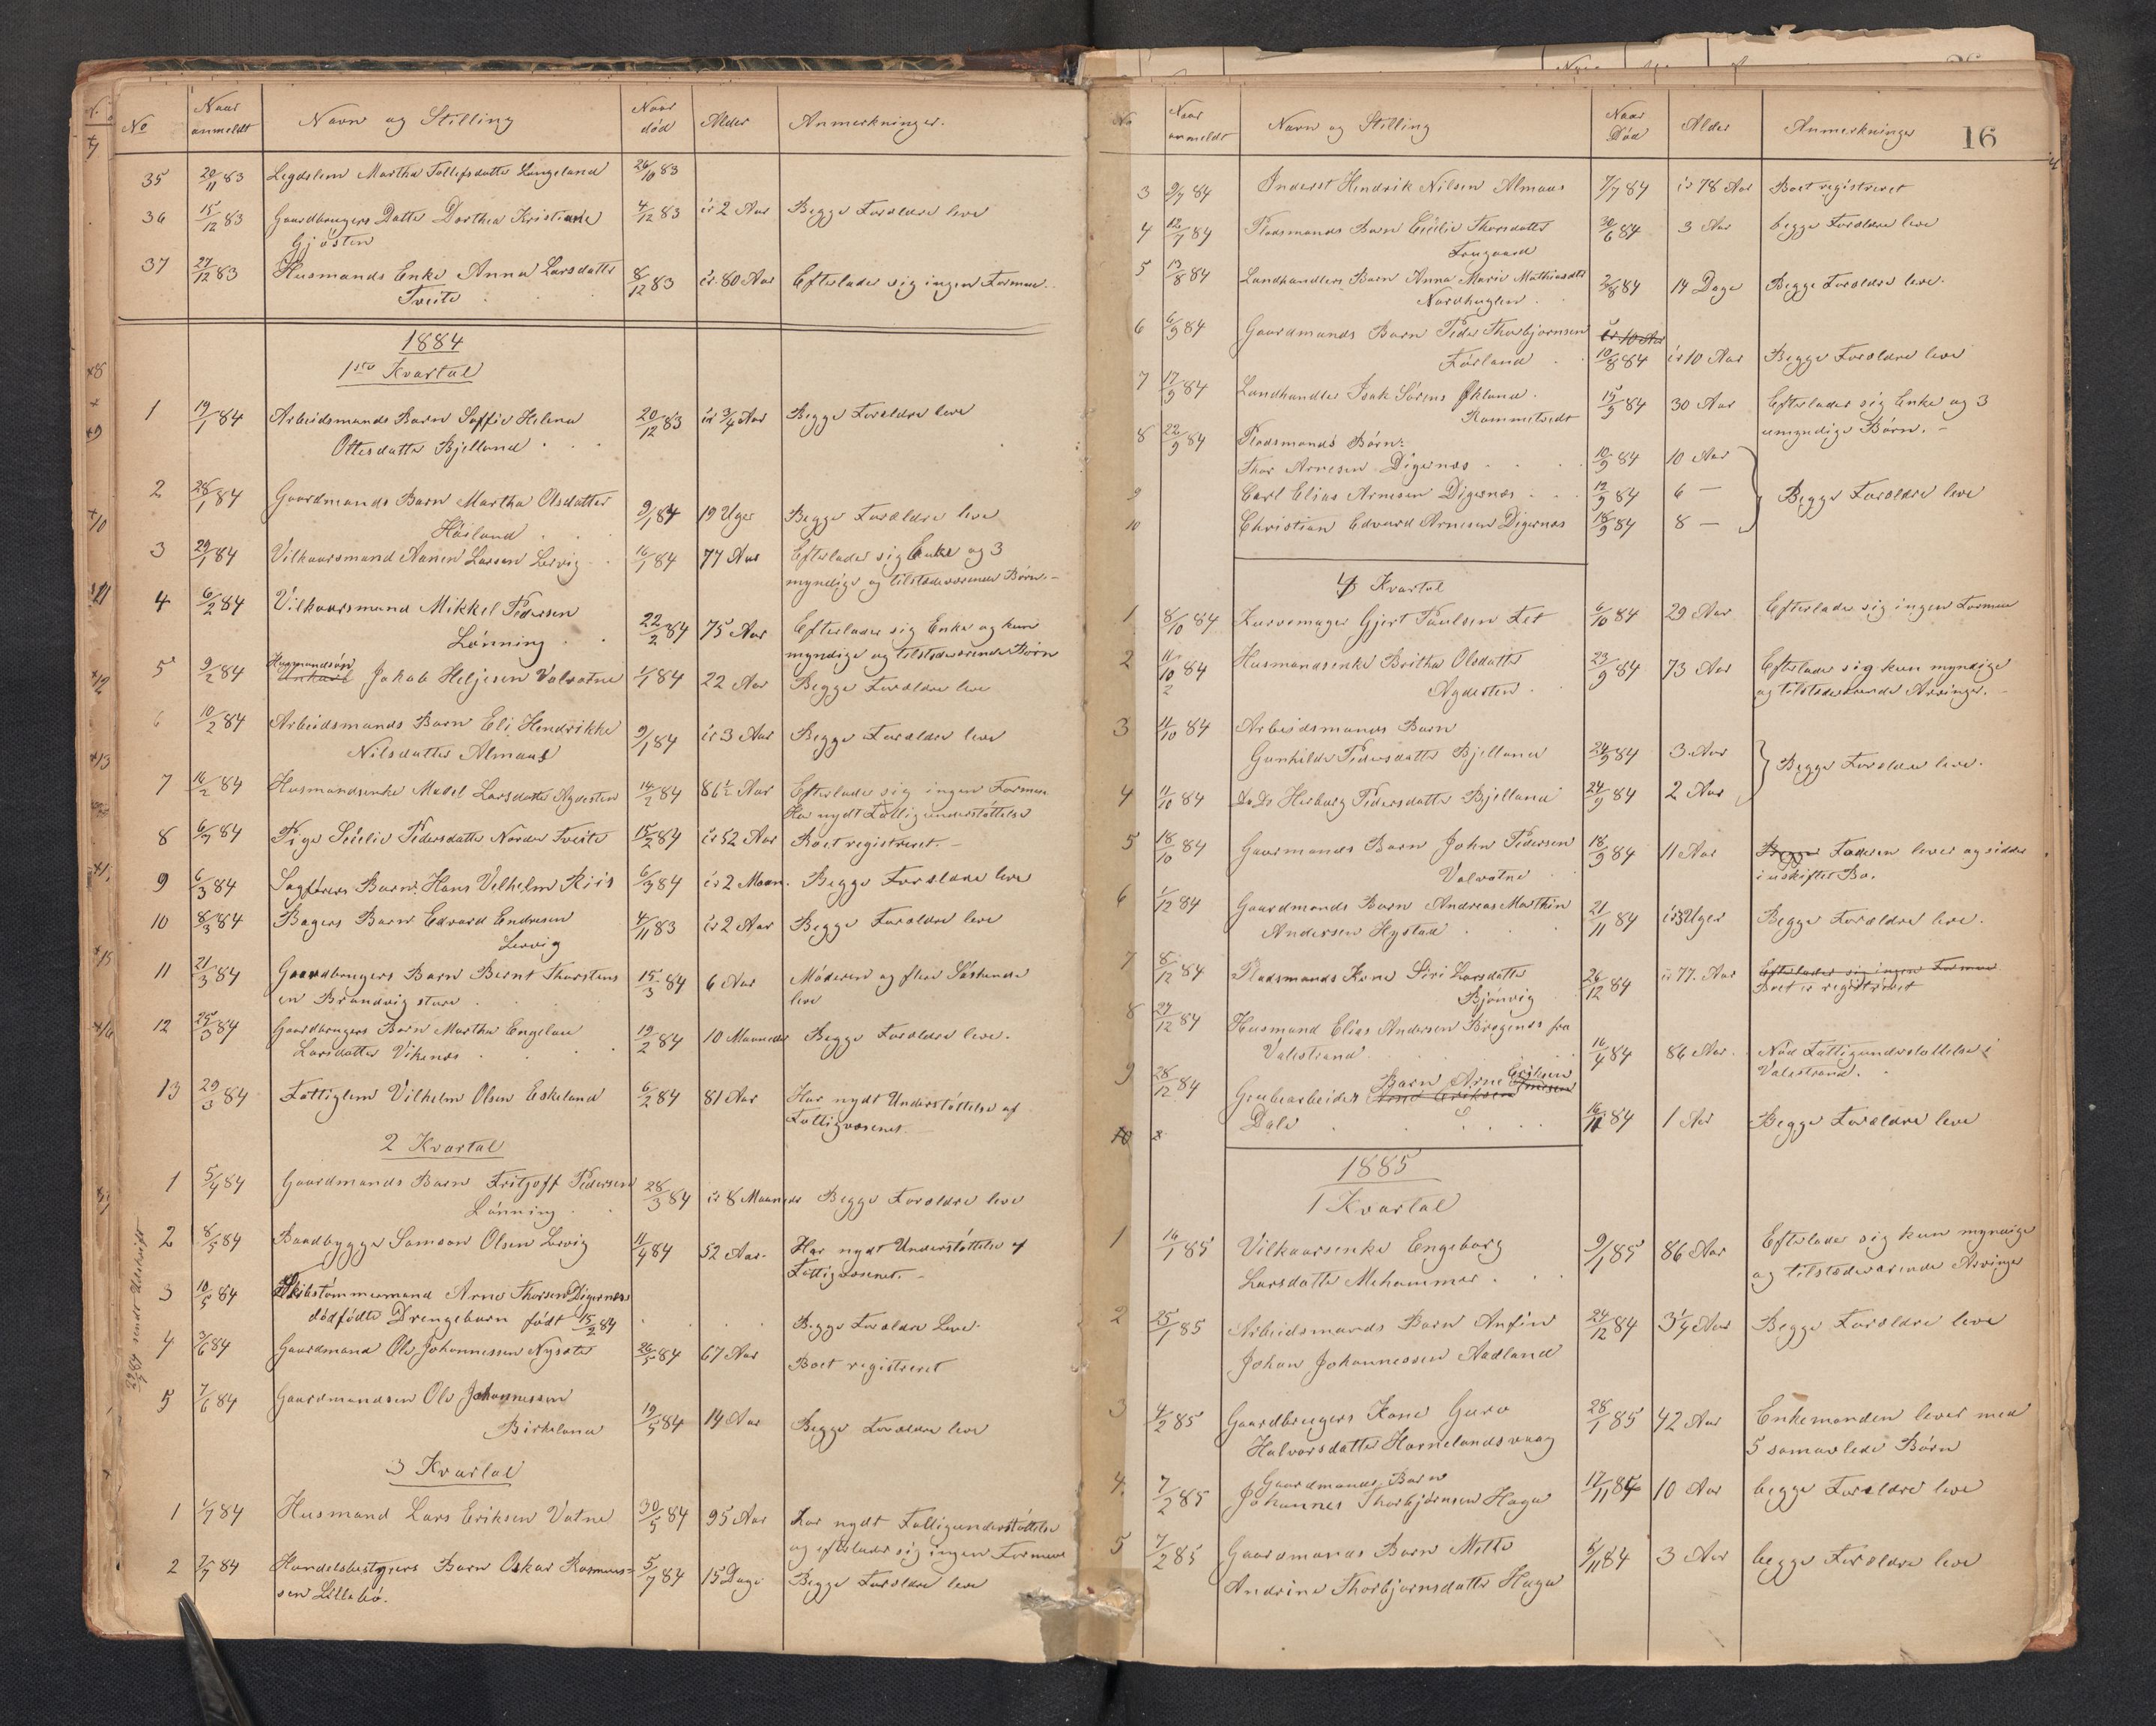 No | Naar anmeldt | Navn og Stilling | Naar död | Alder | Anmerkninger.
35 | 20/11 83 | Legdelem Martha Tollefsdatter Langeland | 26/10 83
36 | 15/12 83 | Gaardbrugers Datter Dorthea Kristiane | 4/12 83 | ir 2 Aar | Begge Forældre leve
Gjösten
37 | 27/12 83 | Husmands Enke Anna Larsdatter | 8/12 83 | ir 80 Aar | Efterlader sig ingen Formue.
Tveite
1884
1ste Kvartal
1 | 19/1 84 | Arbeidsmands Barn Soffie Helena | 20/12 83 | ir 3/4 Aar | Begge Forældre leve
Ottesdatter Bjelland
2 | 28/1 84 | Gaardmands Barn Martha Olsdatter | 9/1 84 | 19 Uger | Begge Forældre leve
Håsland
3 | 29/1 84 | Vilkaarsmand Aanen Larsen Lervig | 16/1 84 | 77 Aar | Efterlader sig Enke og 3
myndige og tilstedeværende Børn.
4 | 6/2 84 | Vilkaarsmand Mikkel Pedersen | 22/2 84 | 75 Aar | Efterlader sig Enke og kun
Lönning | myndige og tilstedeværende Børn
5 | 9/2 84 | Husmandsön Jakob Heljesen Valvatne | 1/1 84 | 22 Aar | Begge Forældre leve
6 | 10/2 84 | Arbeidsmands Barn Eli Hendrikke | 9/1 84 | ir 3 Aar | Begge Forældre leve
Nilsdatter Almaas
7 | 16/2 84 | Husmandsenke Madel Larsdatter Agdesten | 14/2 84 | 86 1/2 Aar | Efterlader sig ingen Formue
Har nydt Fattigunderstöttelse
8 | 6/3 84 | Pige Sicilie Pedersdatter Nordre Tveite | 15/2 84 | ir 52 Aar | Boet registreret.
9 | 6/3 84 | Sagförers Barn: Hans Vilhelm Riis | 6/3 84 | ir 2 Maan. | Begge Forældre leve
10 | 8/3 84 | Bagers Barn Edvard Endresen | 4/11 83 | ir 2 Aar | Begge Forældre leve
Lervig
11 | 21/3 84 | Gaardbrugers Barn Bernt Thorstens | 15/3 84 | 6 Aar | Möderen og flere Söskende
en Brandvig store | leve
12 | 25/3 84 | Gaardbrugers Barn Martha Engeline | 19/2 84 | 10 Maaneder | Begge Forældre leve.
Larsdatter Vikenæs
13 | 29/3 84 | Fattiglem Vilhelm Olsen Eskeland | 6/2 84 | 81 Aar | Har nydt Understöttelse af
Fattigvæsenet
2 Kvartal
1 | 5/4 84 | Gaardmands Barn Fritjoff Pedersen | 28/3 84 | ir 8 Maaneder | Begge Forældre leve
Lönning
2 | 8/5 84 | Baadbygger Samson Olsen Lervig | 11/4 84 | 52 Aar. | Har nydt Understöttelse af
Fattigvæsenet.
3 | 10/5 84 | Skibstömmermand Arne Thorsen Digernæs
dödfödte Drengebarn født 15/2 84 | Begge Forældre Leve
4 | 3/6 84 | Gaardmand Ole Johannessen Nysæter | 26/5 84 | 67 Aar | Boet registreret
5 | 7/6 84 | Gaardmandsen Ole Johannessen | 19/5 84 | 14 Aar | Begge Forældre leve
Birkeland
29/7 84 sendt Udskrift
3 Kvartal
1 | 1/7 84 | Husmand Lars Eriksen Vatne | 30/5 84 | 95 Aar | Har nydt Fattigunderstöttelse
og efterlader sig ingen Formue
2 | 7/7 84 | Handelsbestyrers Barn Oskar Rasmus- | 5/7 84 | 15 Dage | Begge Forældre leve
sen Lillebö.
16
No | Naar anmeldt | Navn og Stilling | Naar Död | Alder | Anmerkninger
3 | 9/7 84 | Inderst Hendrik Nilsen Almaas | 7/7 84 | ir 78 Aar | Boet registreret
4 | 12/7 84 | Pladsmands Barn Cicilie Thorsdatter | 30/6 84 | 3 Aar | begge Forældre leve
Frugaard
5 | 13/8 84 | Landhandlers Barn Anna Marie Mathiasdtr | 2/8 84 | 14 Dage | Begge Forældre leve.
Nordhuglen
6 | 6/9 84 | Gaardmands Barn Peder Thorbjørnsen | ir 10 Aar
Førland | 10/8 84 | ir 10 Aar | Begge Forældre leve
7 | 17/9 84 | Landhandler Isak Sörens Økland | 15/9 84 | 30 Aar | Efterlader sig Enke og 3
Rommetvedt | umyndige Børn.
8 | 22/9 84 | Pladsmands Børn:
Thor Arnesen Digernæs | 10/9 84 | 10 Aar
9 | Carl Elias Arnesen Digernæs | 12/9 84 | 6 — | Begge Forældre leve
10 | Christian Edvard Arnesen Digernæs | 18/9 84 | 8 —
4 Kvartal
1 | 8/10 84 | Kurvemager Gjert Paulsen Let | 6/10 84 | 29 Aar | Efterlader sig ingen Formue
2 | 11/10 84 | Husmandsenke Britha Olsdatter | 23/9 84 | 73 Aar | Efterlader sig kun myndige
Agdesten | og tilstedeværende Arvinger.
3 | 11/10 84 | Arbeidsmands Barn
Gunhilde Pedersdatter Bjelland | 24/9 84 | 3 Aar | Begge Forældre leve.
4 | 11/10 84 | Do Do Herborg Pedersdatter Bjelland | 24/9 84 | 2 Aar
5 | 18/10 84 | Gaarmands Barn John Pedersen | 18/9 84 | 11 Aar | Begge Faderen lever og sidder
Valvatne | i uskiftet Bo.
6 | 1/12 84 | Gaardmands Barn Andreas Mathin | 21/11 84 | ir 3 Uger | Begge Forældre leve.
Andersen Hystad
7 | 8/12 84 | Pladsmands Kone Siri Larsdatter | 26/12 84 | ir 77. Aar | Efterlader sig ingen Formue
Bjönvig | Boet er registreret
8 | 27/12 84 | Husmand Elias Andersen Brogenæs fra
Valestrand | 16/4 84 | 86 Aar. | Nød Fattigunderstøttelse i
Valestrand.
9 | 28/12 84 | Grubearbeider Barn Arne Eriksen
Dale | 16/11 84 | 1 Aar | Begge Forældre leve
10
1885
1 Kvartal
1 | 16/1 85 | Vilkaarsenke Engeborg | 9/1 85 | 86 Aar | Efterlader sig kun myndige
Larsdatter Mehammer | og tilstedeværende Arvinger
2 | 25/1 85 | Arbeidsmands Barn Anfin | 24/12 84 | 3 1/4 Aar | Begge Forældre leve
Johan Johannessen Aadland
3 | 4/2 85 | Gaardbrugers Kone Guro | 28/1 85 | 42 Aar | Enkemanden lever med
Halvorsdatter Hornelandsvaag | 5 samavlede Børn
4. | 7/2 85 | Gaardmands Barn
Johannes Thorbjörnsen Haga | 17/11 84 | 10 Aar | begge Forældre leve
5 | 7/2 85 | Gaardmands Barn Mette | 5/11 84 | 3 Aar | begge Forældre leve
Andrine Thorbjørnsdatter Haga